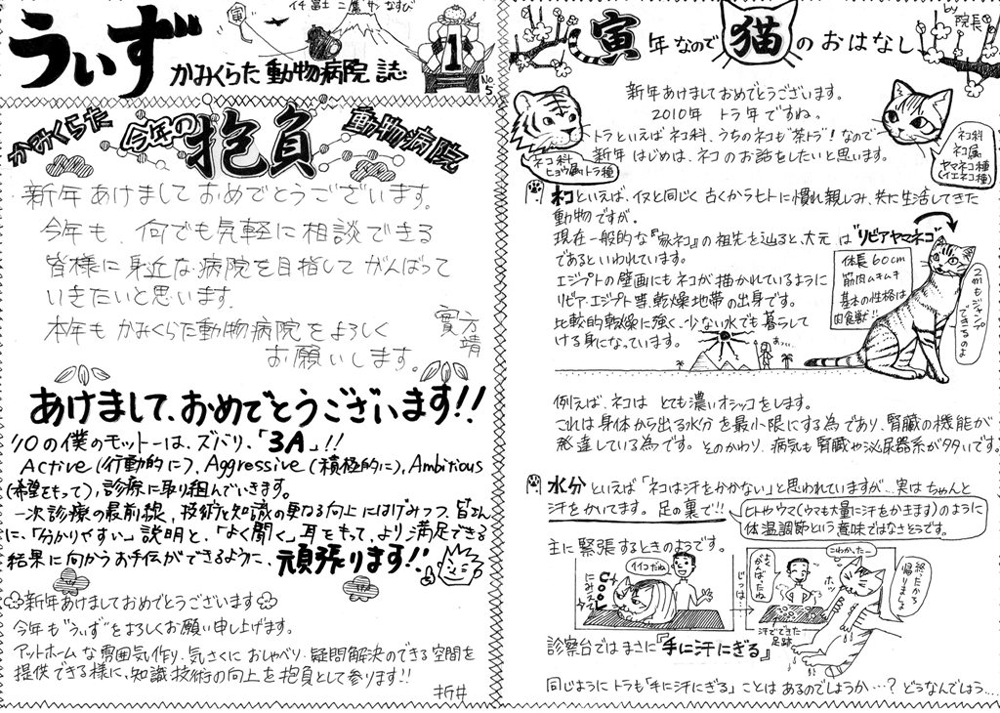 一富士 二鷹 三 なすび
寅
うぃず
かみくらた動物病院 誌
1
No 5
かみくらた 今年の 抱負 動物病院
新年あけましておめでとうございます。
今年も、何でも気軽に相談できる
皆様に身近な病院を目指してがんばって
いきたいと思います。
本年もかみくらた動物病院をよろしく
お願いします。
實方 靖
あけまして、おめでとうございます!!
'10の僕のモットーは、ズバリ、「3A」!!
Active(行動的に)、Aggressive(積極的に)、Ambitious
(希望をもって)、診療に取り組んでいきます。
一次診療の最前線、技術と知識の更なる向上にはげみつつ、皆さん
に、「分かりやすい」説明と、「よく聞く」耳をもって、より満足できる
結果に向かうお手伝ができるように、頑張ります!!
新年あけましておめでとうございます
今年も"うぃず"をよろしくお願い申し上げます。
アットホームな雰囲気作り、気さくにおしゃべり、疑問解決のできる空間を
提供できる様に、知識・技術の向上を抱負として参ります!!
折井
by 院長
寅年なので猫のおはなし
新年あけましておめでとうございます。
2010年 トラ年ですね。
トラといえばネコ科、うちのネコも"茶トラ"!なので
新年はじめは、ネコのお話をしたいと思います。
ネコ科
ヒョウ属トラ種
ネコ科
ネコ属
ヤマネコ種
(イエネコ種)
ネコといえば、イヌと同じく古くからヒトに慣れ親しみ、共に生活してきた
動物ですが。
現在一般的な『家ネコ』の祖先を辿ると、大元は"リビアヤマネコ"
であるといわれています。
エジプトの壁画にもネコが描かれているように
リビア、エジプト等、乾燥地帯の出身です。
比較的乾燥に強く、少ない水でも暮らして
ける身になっています。
体長60cm
筋肉ムキムキ
基本の性格は
肉食獣!!
2mもジャンプ
できるのよ
あっ…
例えば、ネコはとても濃いオシッコをします。
これは身体から出る水分を最小限にする為であり、腎臓の機能が
発達している為です。そのかわり、病気も腎臓や泌尿器系が多いです。
水分といえば「ネコは汗をかかない」と思われていますが…実はちゃんと
汗をかいてます。足の裏で!!
ヒトやウマ(ウマも大量に汗をかきます)のように
体温調節という意味ではなさそうです。
主に緊張するときのようです。
イイコだね
COOL
にみえて
じつは
よく
がんばったね
汗でできた
足跡
こわかったー
ホッ
終ったから
帰りましょ
診察台ではまさに『手に汗にぎる』
同じようにトラも「手に汗にぎる」ことはあるのでしょうか…? どうなんでしょう…